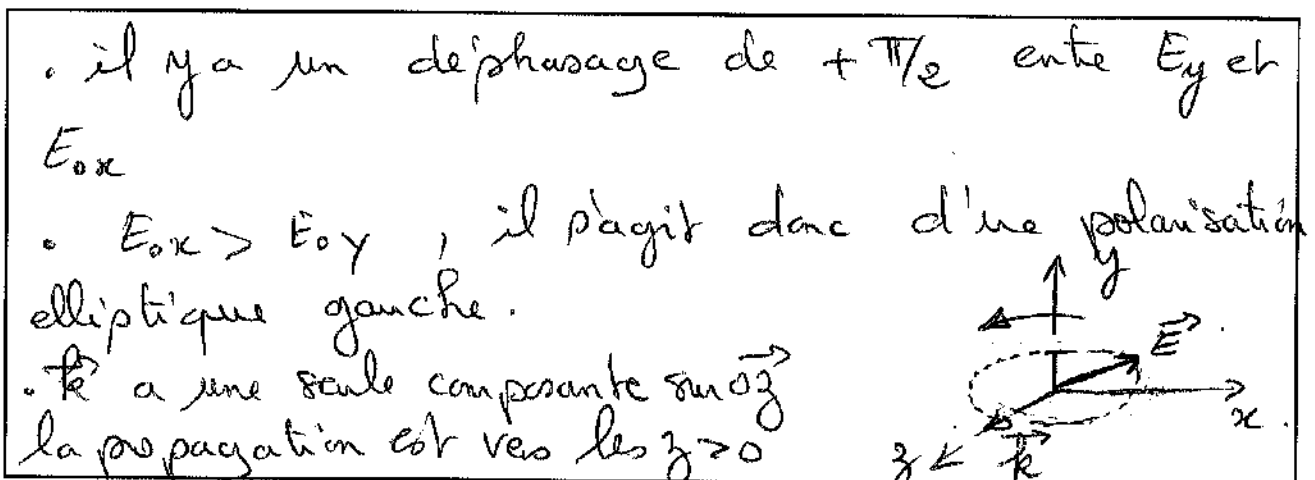 . il y a un déphasage de + π/2 entre Ey et
E0x
. E0x > E0y , il s'agit donc d'une polarisation
elliptique gauche.
. k⃗ a une seule composante sur 0z⃗
la propagation est vers les z > 0
y
E⃗
x
z
k⃗